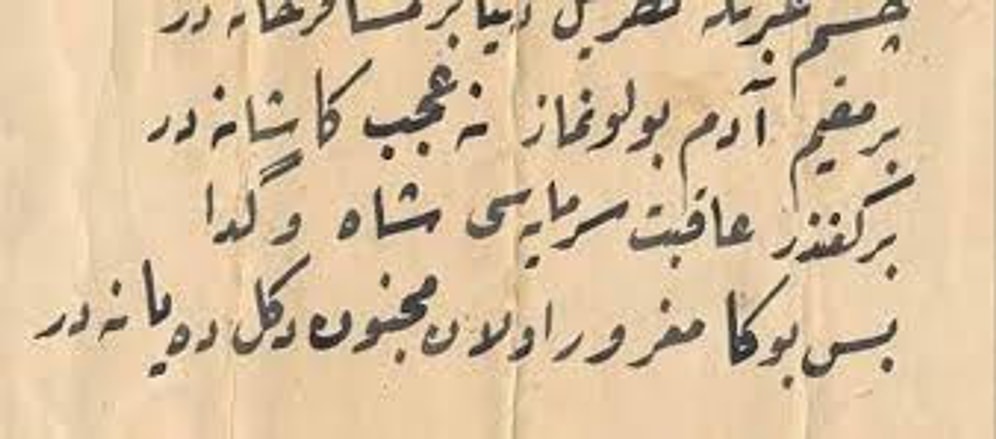 چشم عبرتله نظر قیل دنیا بر مسافرخانه در
بر مقیم آدم بولونماز نه عجب کاشانه در
بر کفندر عاقبت سرمایه‌سی شاه و گدا
بس بوکا مغرور اولان مجنون دکل ده یا نه در